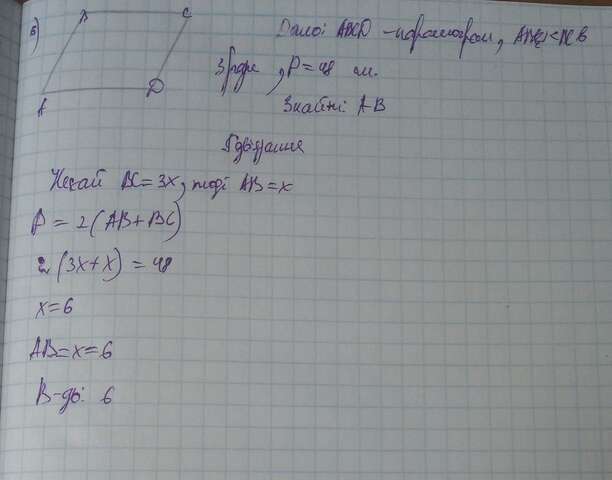 B C
б)
A D
Дано: ABCD - паралограм, AB < BC в
3 рази, P = 48 см.
Знайти: AB
Нехай BC = 3x, тоді AB = x
P = 2(AB + BC)
2(3x + x) = 48
x = 6
AB = x = 6
В-дь: 6